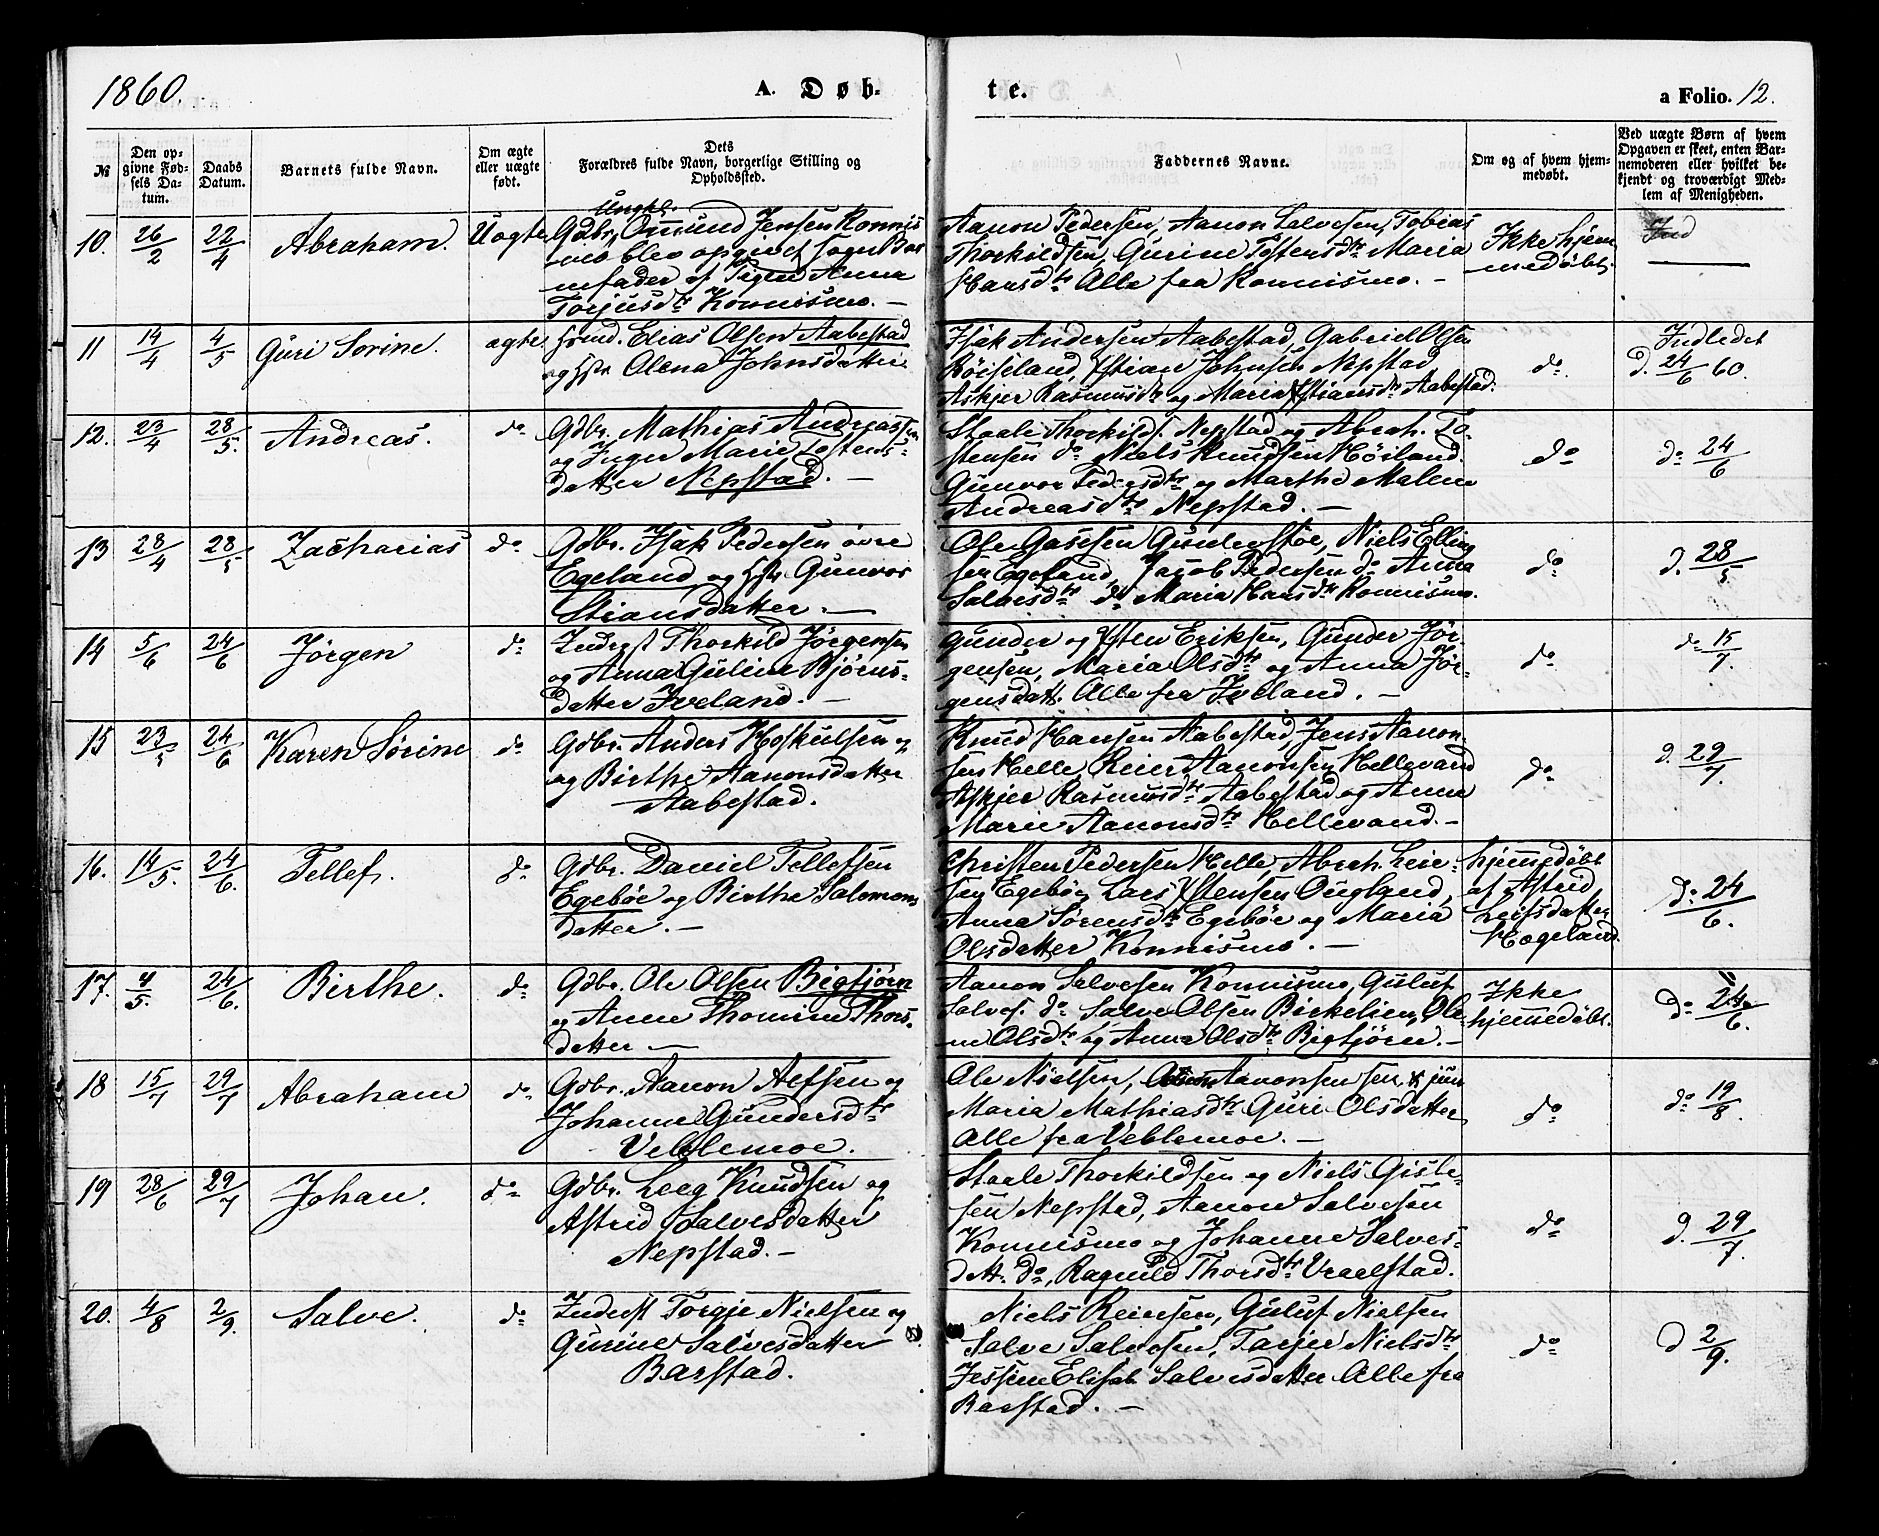 1860.
A. Døb-
te.
a Folio. 12.
№
Den opgivne Fødsels Datum.
Daabs Datum.
Barnets fulde Navn.
Om ægte eller uægte født.
Dets Forældres fulde Navn, borgerlige Stilling og Opholdssted.
Faddernes Navne.
Om og af hvem hjemmedøbt.
Ved uægte Børn af hvem Opgaven er skeet, enten Barnemoderen eller hvilket bekjendt og troværdigt Medlem af Menigheden.
10. 26/2 22/4 Abraham. Uægte
Ungkl.
Gdbr. Omund Jensen Konnis
mo blev opgivet som Bar
nefader af Pigen Anna
Torjusdtr Konnismo. —
Aanon Pedersen, Aanon Salvesen, Tobias
Thorkildsen, Gurine Tostensdtr Maria
Hansdtr Alle fra Konnismo. —
Ikke hjem
medøbt.
Ind
11 14/4 4/5 Guri Sorine. ægte
Elias Olsen Aabestad
og Hstr Olena Johnsdatter
Isak Andersen Aabestad, Gabriel Olsen
Røiseland, Stian Johnsen Nepstad
Askjer Rasmusdtr og Maria Stiansdtr Aabestad.
do.
Indledet
d. 24/6 60.
12. 23/4 28/5. Andreas. do
Gdbr. Mathias Andreassen
og Inger Marie Tostens-
datter Nepstad. —
Staale Thorkilds. Nepstad og Abrah. To-
stensen do Niels Knudsen Høiland.
Gunvor Pedersdtr og Marthe Malene
Andreasdtr Nepstad. —
do
do 24/6
13 28/4 28/5 Zacharias do
Gdbr. Isak Pedersen øvre
Egeland og Hstr Gunvor
Stiansdatter. —
Ole Gasesen Gunderstøe, Niels Elling
sen Egeland, Jacob Pedersen do Anna
Salvesdtr do Maria Hansdtr Konnismo.
do
d. 28/5
14 5/6 24/6 Jørgen do
Inderst Thorkild Jørgensen
og Anna Guline Bjørns-
datter Iveland. —
Gunder og Østen Eriksen, Gunder Jør-
gensen, Maria Olsdtr og Anna Jør-
gensdatt. Alle fra Iveland. —
do
do 15/7.
15 23/5 24/6 Karen Sørine do
Gdbr. Anders Hoskulsen og
og Birthe Aanonsdatter
Aabestad.
Knud Hansen Aabestad, Jens Aanon-
sen Helle, Reier Aanonsen Hellevand
Askjer Rasmusdtr Aabestad og Anne
Marie Aanonsdtr Hellevand. —
do
d. 29/7.
16. 14/5. 24/6. Tellef. do
Gdbr. Daniel Tellefsen
Egebøe og Birthe Salomons
datter. —
Christen Pedersen Helle, Abrah. Leie-
sen Egebøe, Lars Østensen Ougland,
Anna Sørensdtr Egebøe og Maria
Olsdatter Konnismo. —
hjemmedøbt
af Astrid
Leifsdatter
Hægeland.
do 24/6.
17. 4/5. 24/6. Birthe. do
Gdbr. Ole Olsen Bigtjørn
og Anne Thomine Thors-
datter —
Aanon Salvesen Konnismo, Guluf
Salves. do Salve Olsen Birkelien, Ole-
ne Olsdtr og Anna Olsdtr Bigtjørn. —
Ikke
hjemmedøbt.
do 24/6.
18 15/7 29/7 Abraham do
Gdbr. Aanon Alfsen og
Johanne Gundersdtr
Veblemoe.
Ole Nielsen, Aanonsen sen. & jun.
Maria Mathiasdtr Guri Olsdatter
Alle fra Veblemoe. —
do
do 19/8.
19 28/6 29/7 Johan. do
Gdbr. Leeg Knudsen og
Astrid Salvesdatter
Nepstad. —
Staale Thorkildsen og Niels Gisle-
sen Nepstad, Aanon Salvesen
Konnismo og Johanne Salves-
datt. do, Ragnild Thorsdtr Vraalstad.
do
d. 29/7.
20. 4/8 2/9. Salve. do
Inderst Torgje Nielsen og
Gurine Salvesdatter
Barstad.
Niels Reiersen, Guluf Nielsen
Salve Salvesen, Tarjer Nielsdtr,
Elisab. Salvesdatter Alle fra
Barstad. —
do
d 2/9.